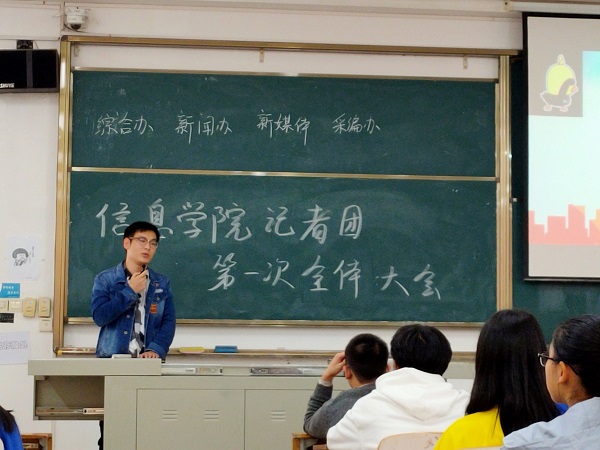 综合办 新闻办 新媒体 采编办
信息学院记者团
第一次全体大会